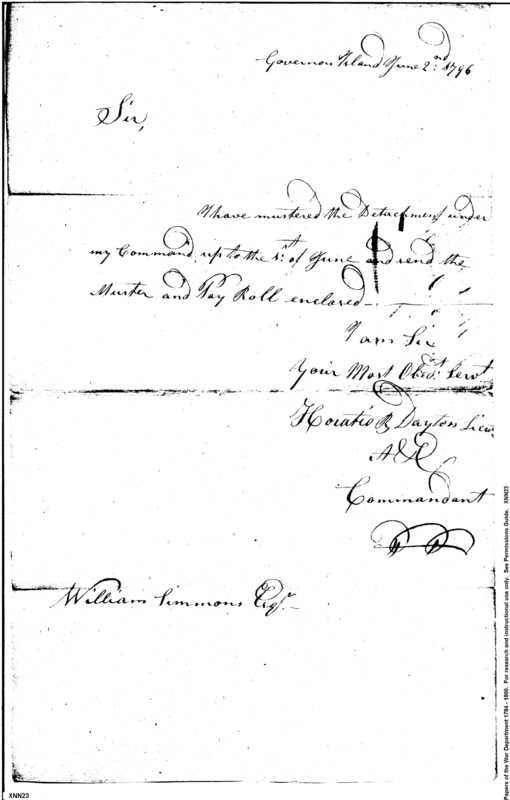 Governors Island June 2.nd 1796
Sir,
I have mustered the Detachment under
my Command up to the 1.st of June and send the
Muster and Pay Roll enclosed
I am Sir
Your Most Obed.t Servt
Horatio R Dayton Lieu
A & E
Commandant
William Simmons Esqr
Papers of the War Department 1784 - 1800. For research and instructional use only. See Permissions Guide. XNN23
XNN23